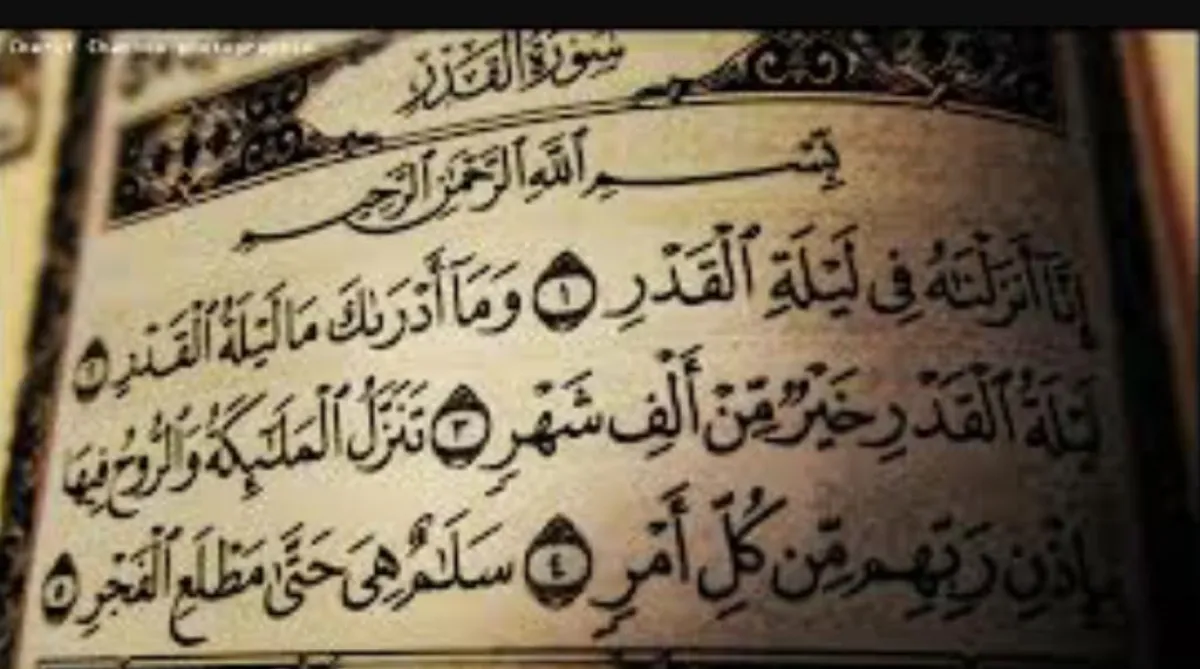 Charif Chanoun photographie
سُورَةُ الْقَدْرِ
بِسْمِ ٱللَّهِ ٱلرَّحْمَٰنِ ٱلرَّحِيمِ
إِنَّآ أَنزَلْنَٰهُ فِى لَيْلَةِ ٱلْقَدْرِ ١ وَمَآ أَدْرَىٰكَ مَا لَيْلَةُ ٱلْقَدْرِ ٢
لَيْلَةُ ٱلْقَدْرِ خَيْرٌ مِّنْ أَلْفِ شَهْرٍ ٣ تَنَزَّلُ ٱلْمَلَٰٓئِكَةُ وَٱلرُّوحُ فِيهَا
بِإِذْنِ رَبِّهِم مِّن كُلِّ أَمْرٍ ٤ سَلَٰمٌ هِىَ حَتَّىٰ مَطْلَعِ ٱلْفَجْرِ ٥